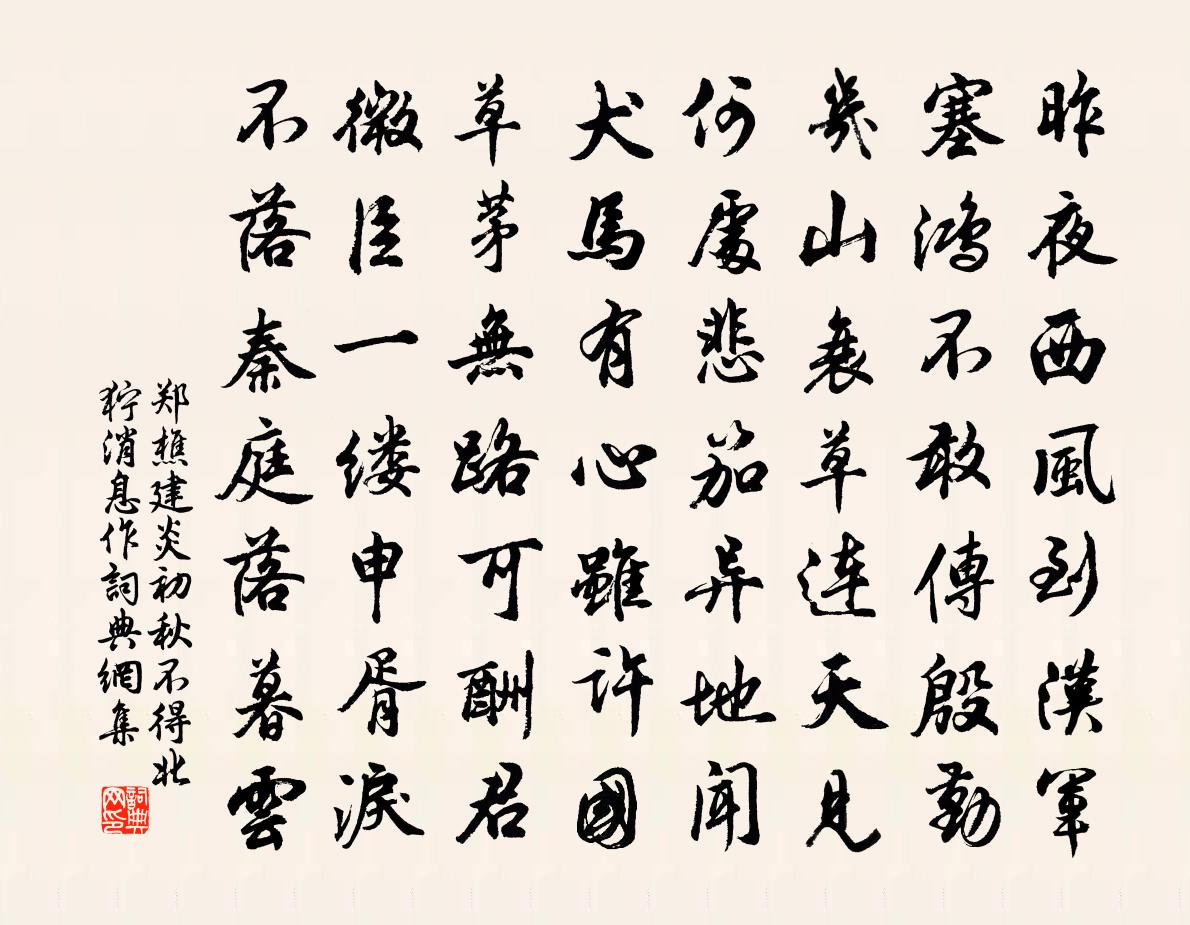 昨夜西風到漢軍
塞鴻不敢傳殷勤
幾山衰草連天見
何處悲笳异地聞
犬馬有心雖許國
草茅無路可酬君
微臣一缕申胥淚
不落秦庭落暮雲
郑樵建炎初秋不得北
狩消息作詞典網集
詞典
网印